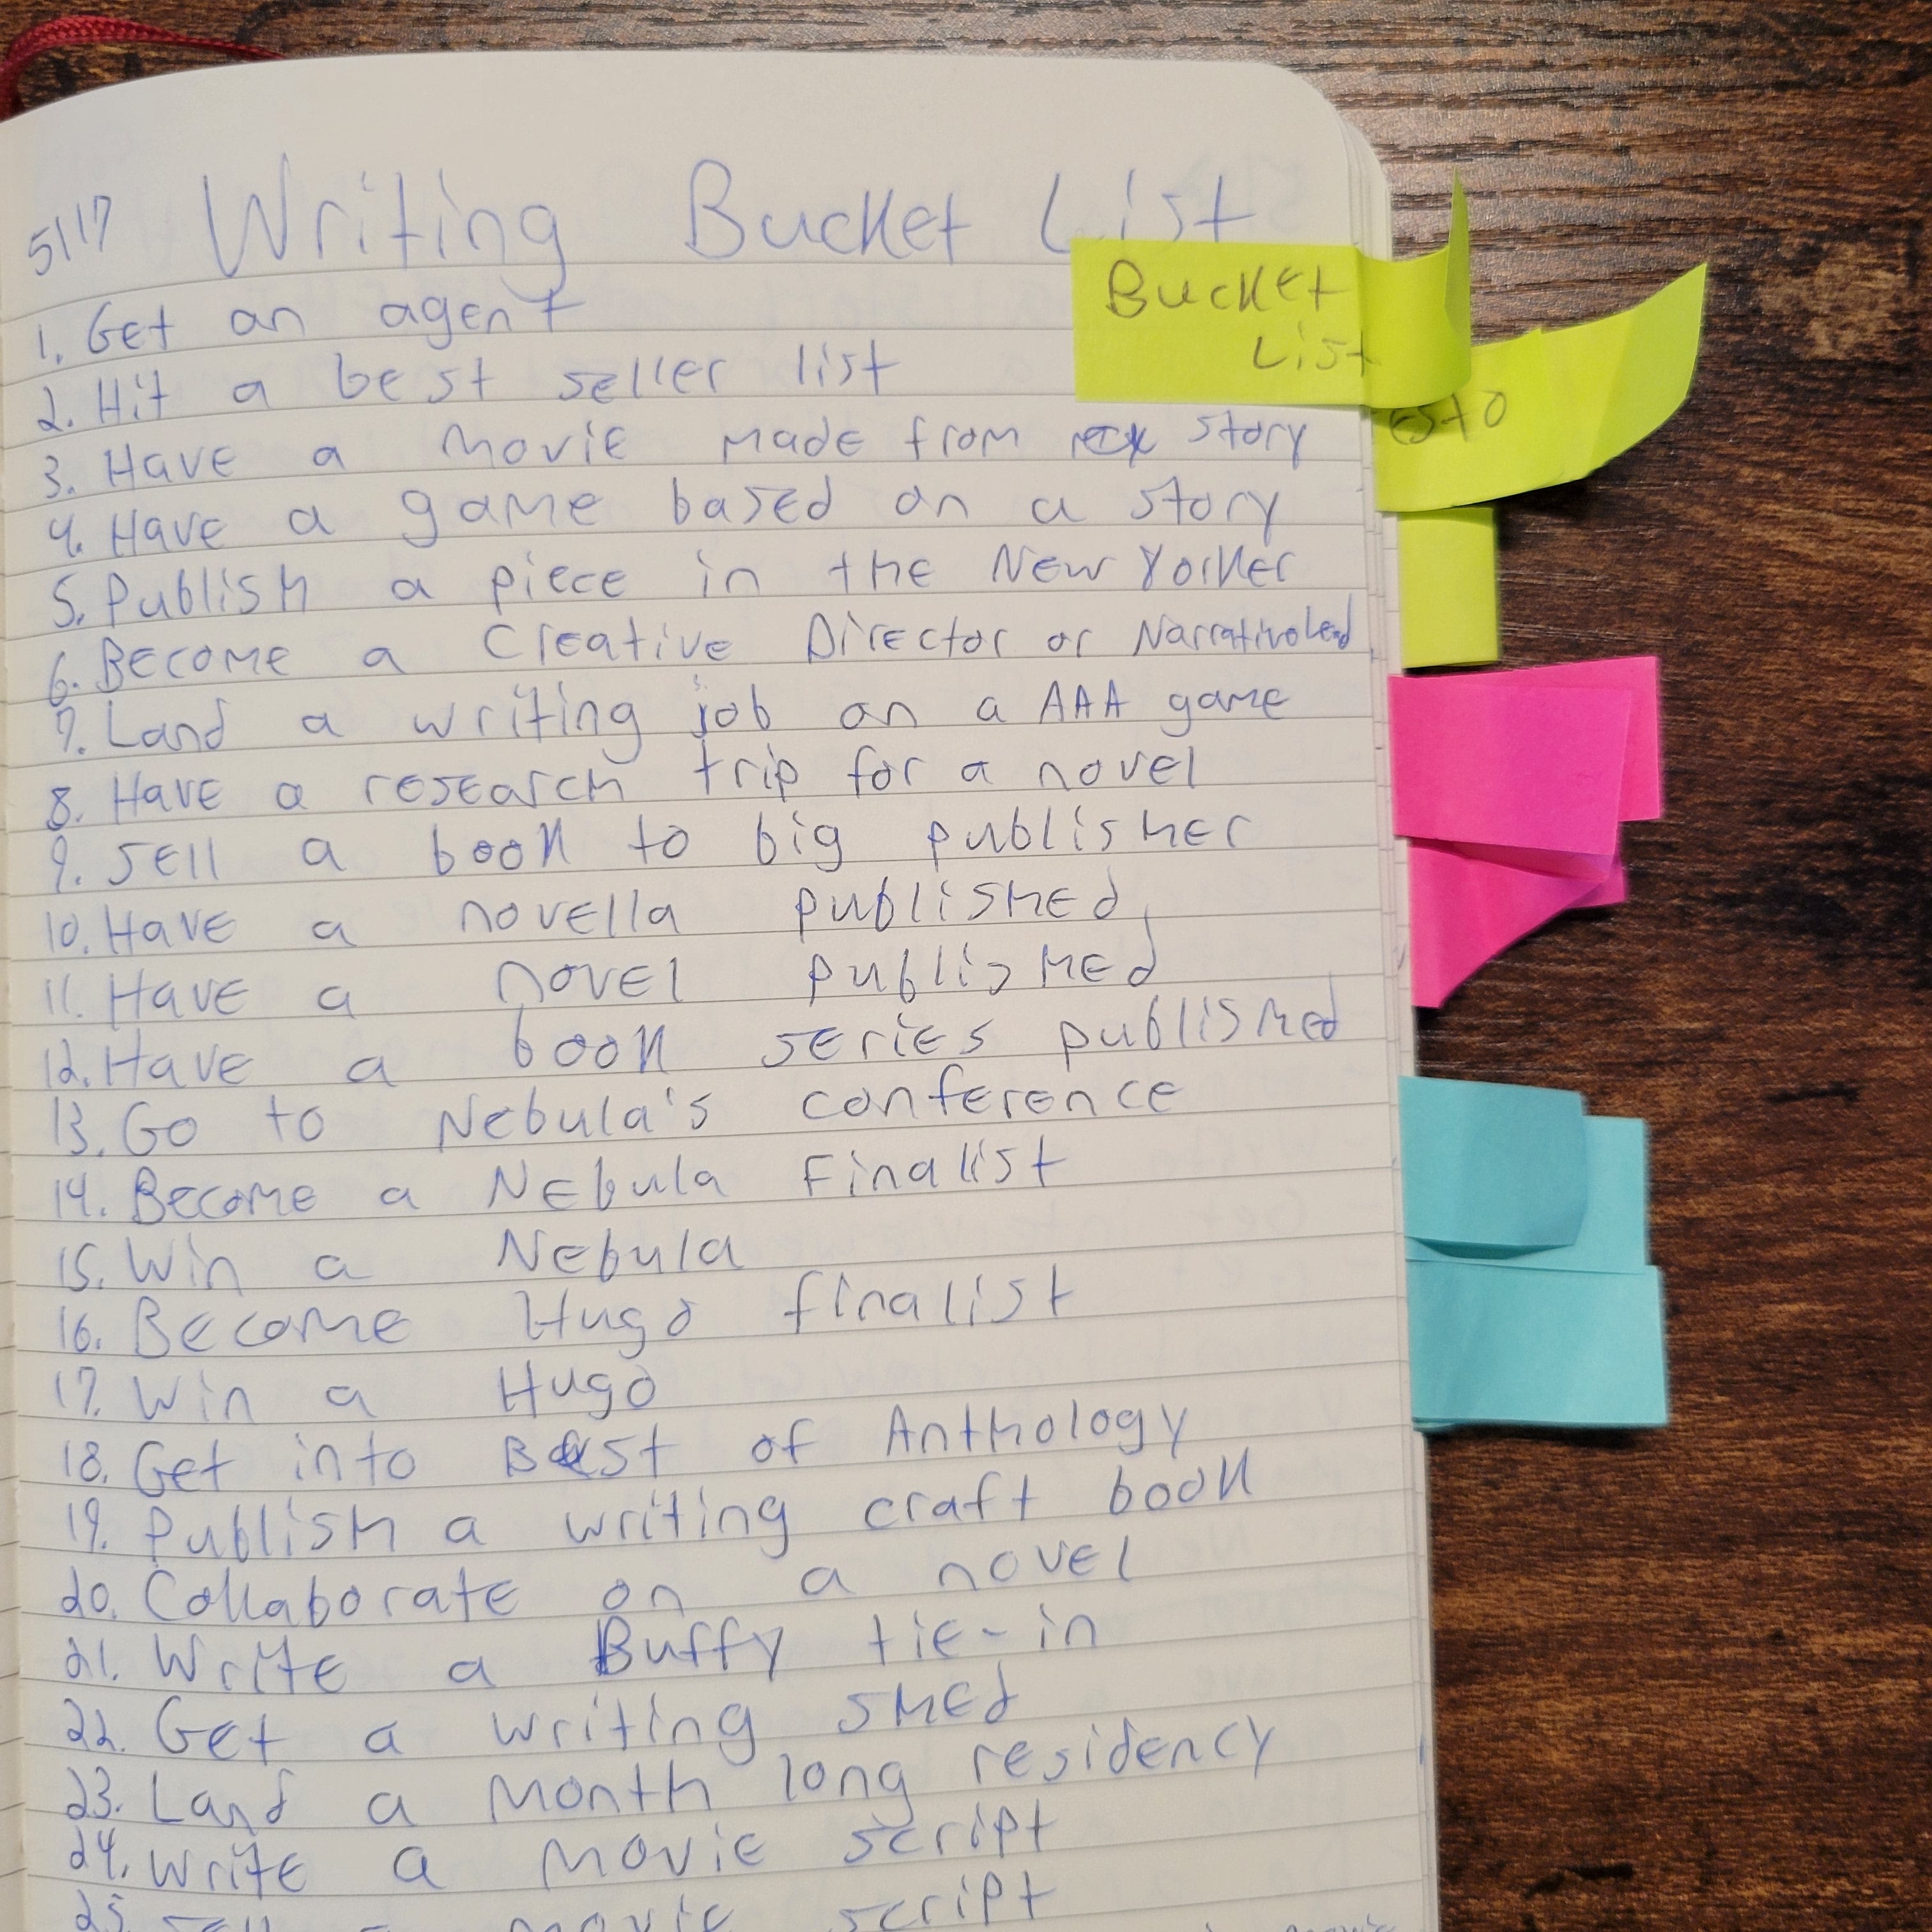 5/17 Writing Bucket List
Bucket
List
1. Get an agent
2. Hit a best seller list
3. Have a movie made from story
4. Have a game based on a story
5. Publish a piece in the New Yorker
6. Become a Creative Director or Narrative Lead
7. Land a writing job on a AAA game
8. Have a research trip for a novel
9. Sell a book to big publisher
10. Have a novella published
11. Have a novel published
12. Have a book series published
13. Go to Nebula's conference
14. Become a Nebula Finalist
15. Win a Nebula
16. Become Hugo finalist
17. Win a Hugo
18. Get into Best of Anthology
19. Publish a writing craft book
20. Collaborate on a novel
21. Write a Buffy tie-in
22. Get a writing shed
23. Land a month long residency
24. Write a movie script
25. Sell a movie script